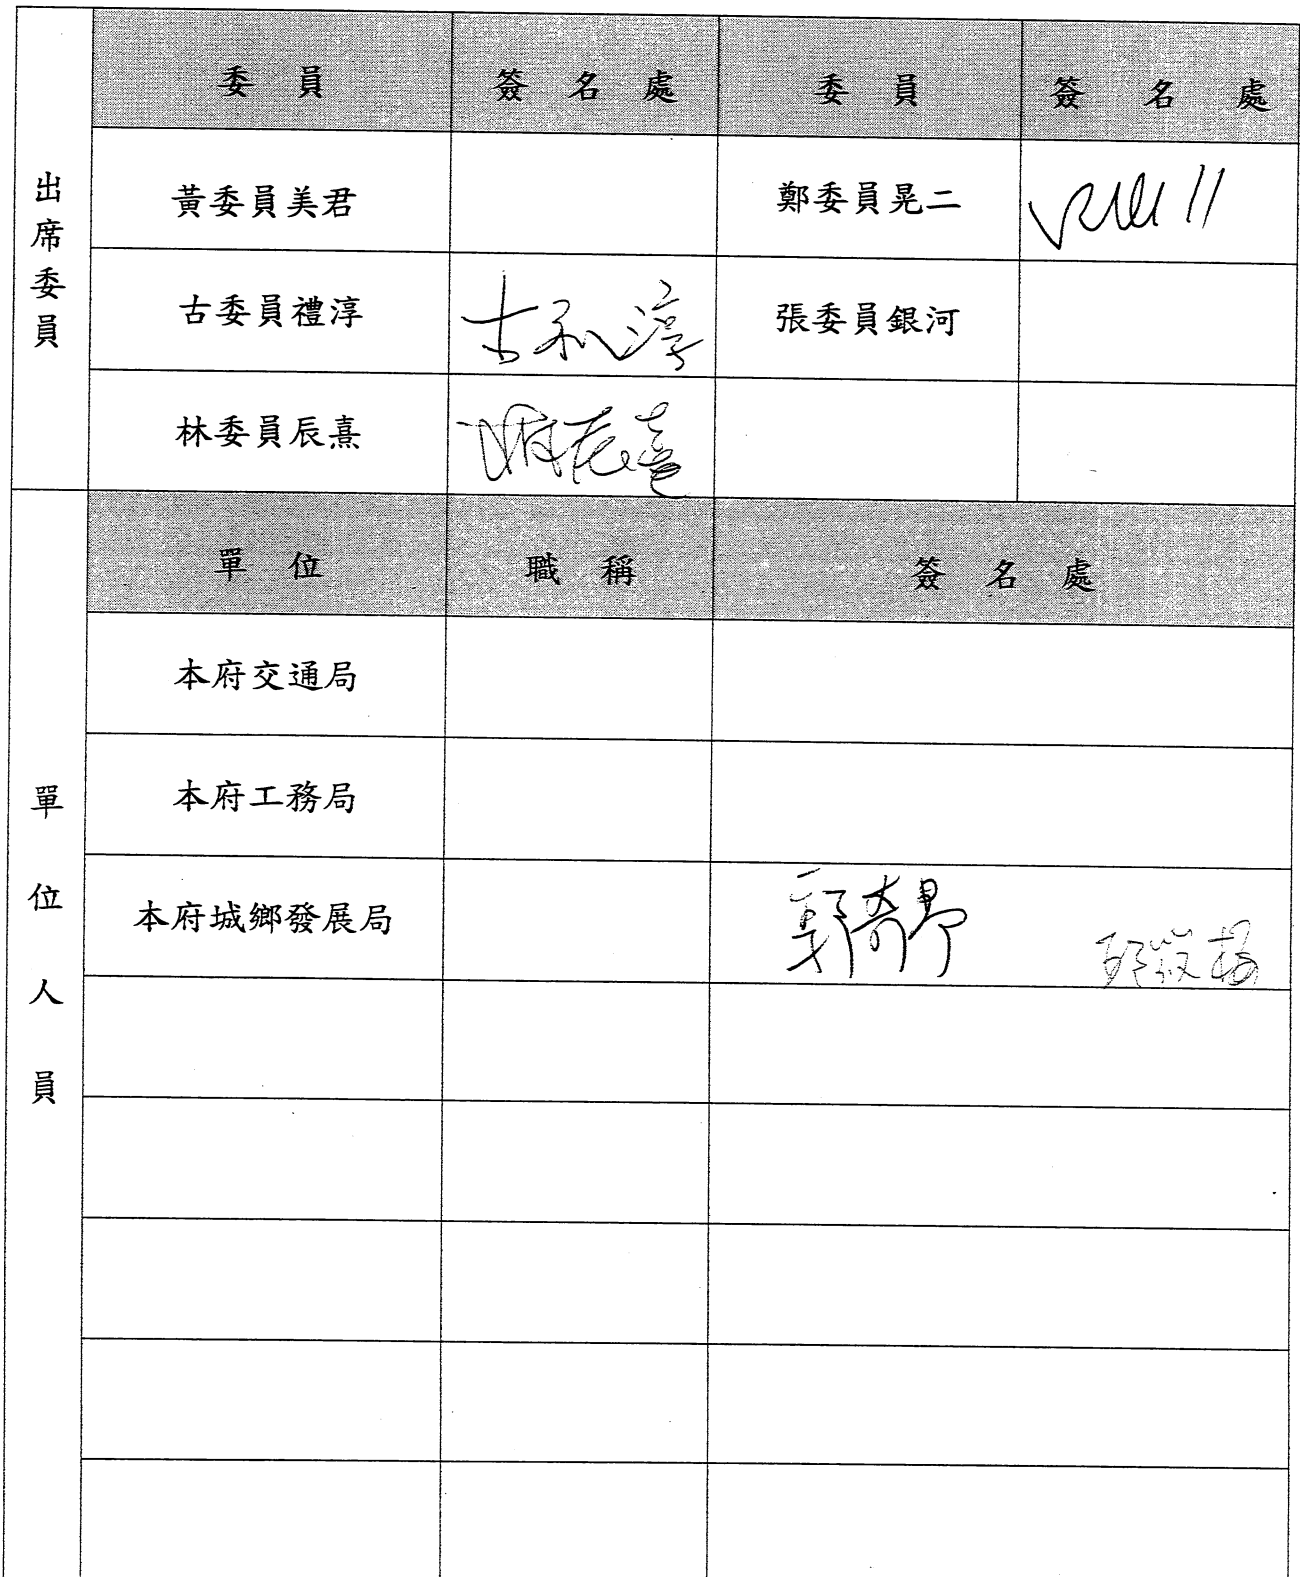 出席委員
委員 簽名處 委員 簽名處
黃委員美君 鄭委員晃二
古委員禮淳 古禮淳 張委員銀河
林委員辰熹 林辰熹
單位人員
單位 職稱 簽名處
本府交通局
本府工務局
本府城鄉發展局